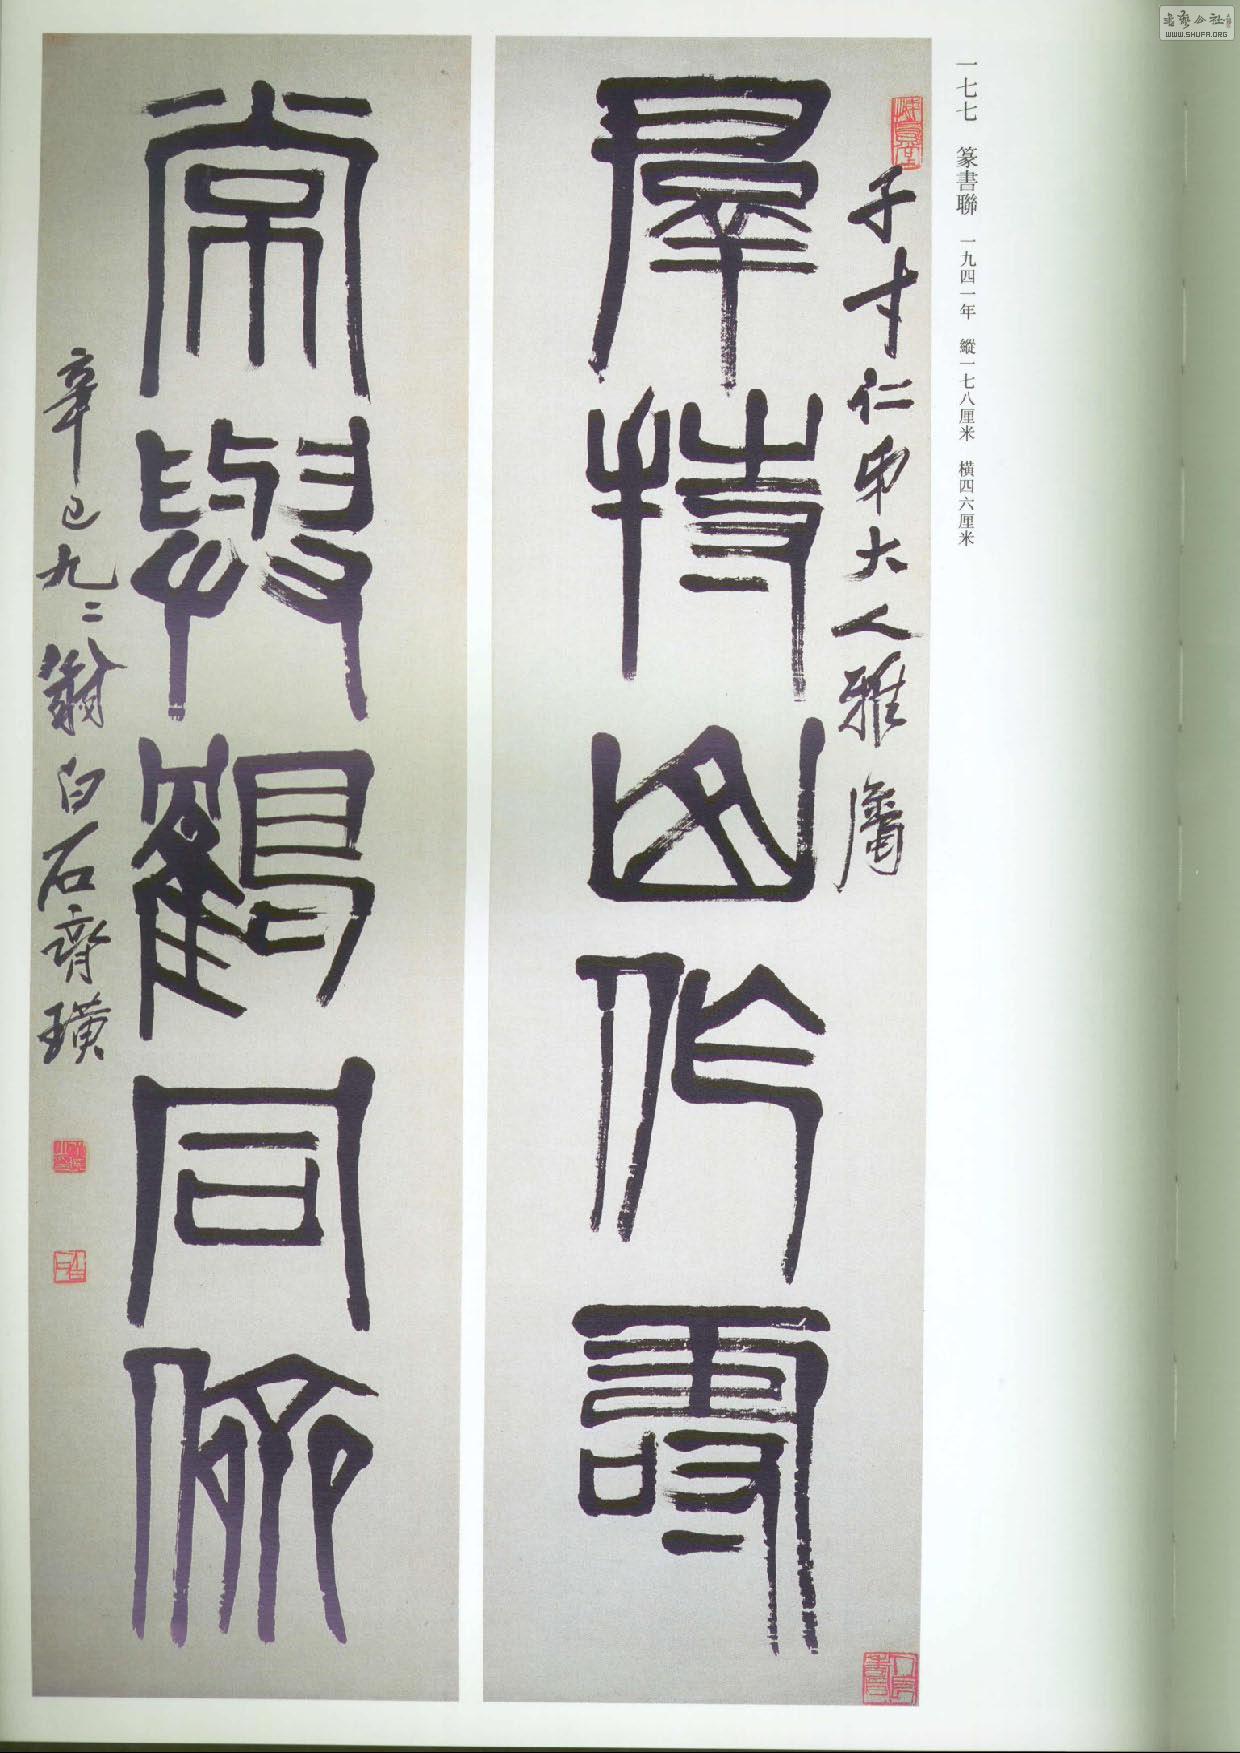 書藝公社
WWW.SHUFA.ORG
一七七 篆書聯 一九四一年 縱一七八厘米 橫四六厘米
子才仁弟大人雅屬
持山作壽
常與鶴同儕
辛巳九二翁白石齊璜